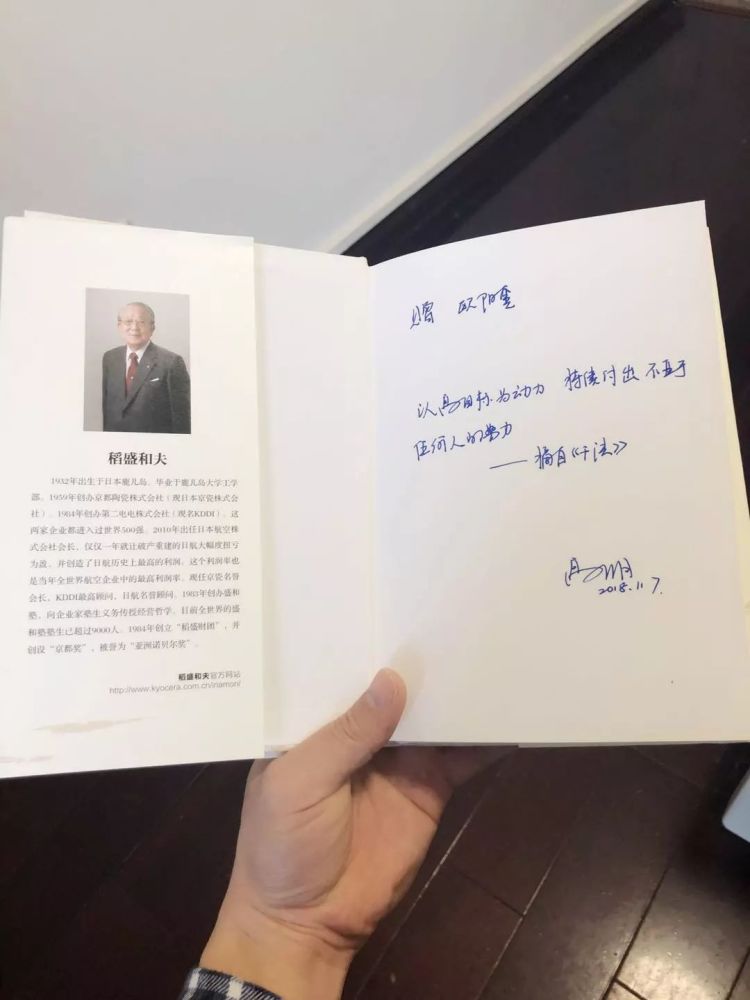 稻盛和夫
1932年出生于日本鹿儿岛。毕业于鹿儿岛大学工学
部。1959年创办京都陶瓷株式会社（现日本京瓷株式会
社）。1984年创办第二电电株式会社（现名KDDI）。这
两家企业都进入过世界500强。2010年出任日本航空株
式会社会长，仅仅一年就让破产重建的日航大幅度扭亏
为盈，并创造了日航历史上最高的利润。这个利润率也
是当年全世界航空企业中的最高利润率。现任京瓷名誉
会长，KDDI最高顾问，日航名誉顾问。1983年创办盛和
塾，向企业家塾生义务传授经营哲学。目前全世界的盛
和塾塾生已超过9000人。1984年创立“稻盛财团”，并
创设“京都奖”，被誉为“亚洲诺贝尔奖”。
稻盛和夫官方网站
http://www.kyocera.com.cn/inamori/
赠 欧阳
以高目标为动力 持续付出不亚于
任何人的努力
——摘自《干法》
高明
2018.11.7.